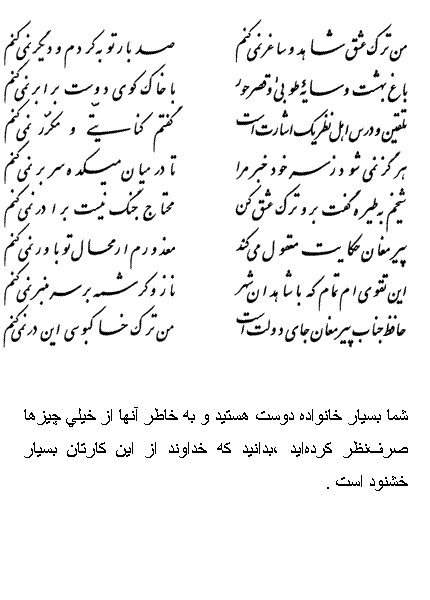 من ترک عشق شاهد و ساغر نمی‌کنم صد بار توبه کردم و دیگر نمی‌کنم
باغ بهشت و سایهٔ طوبیٰ و قصر حور با خاک کوی دوست برابر نمی‌کنم
تلقین و درس اهل نظر یک اشارت است گفتم کنایتّے و مکرّر نمی‌کنم
هرگز نمی شود ز سر خود خبر مرا تا در میان میکده سر بر نمی‌کنم
شیخم به طیره گفت برو ترک عشق کن محتاج جنگ نیست برادر نمی‌کنم
پیر مغان حکایت معقول می‌کند معذورم ار محال تو باور نمی‌کنم
این تقوی ام تمام که با شاهدان شهر ناز و کرشمه بر سر منبر نمی‌کنم
حافظ جناب پیر مغان جای دولت است من ترک خاکبوسی این در نمی‌کنم
شما بسیار خانواده دوست هستید و به خاطر آنها از خیلي چیزها
صرف‌نظر کرده‌اید ،بدانید که خداوند از این کارتان بسیار
خشنود است .